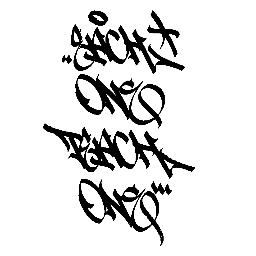 EACH
ONE
TEACH
ONE